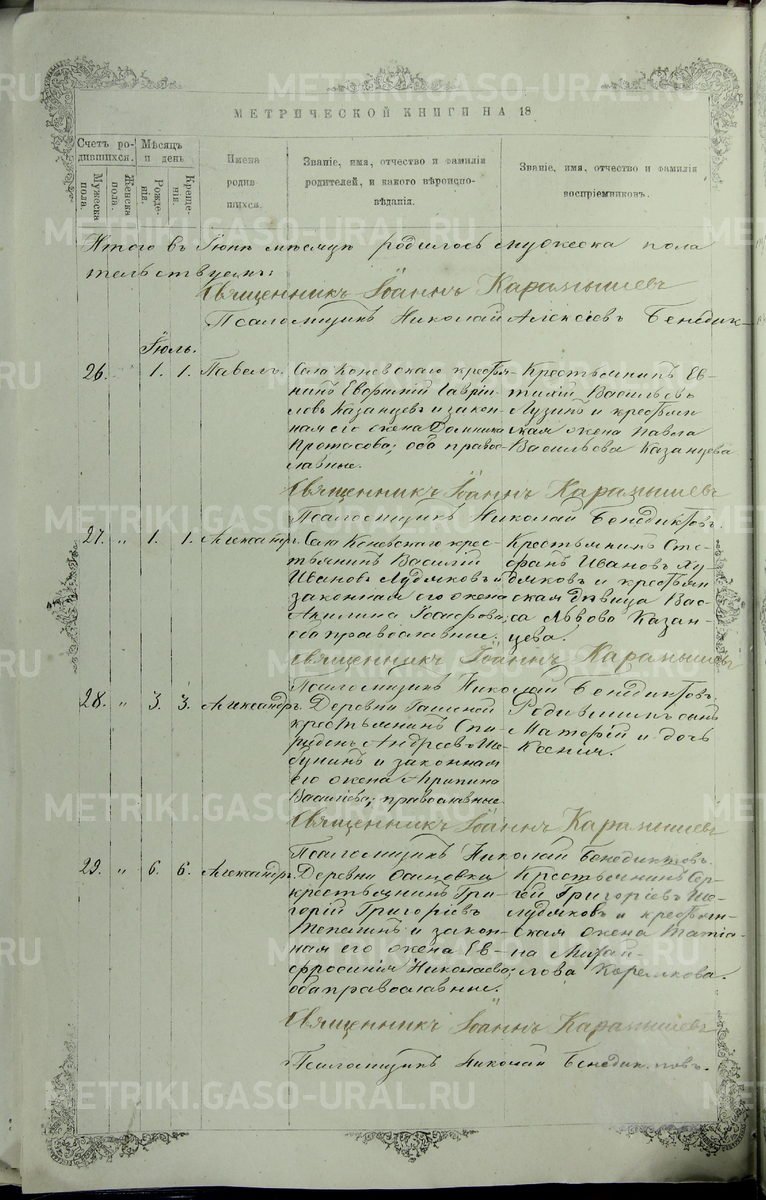 МЕТРИЧЕСКОЙ КНИГИ НА 18
Счетъ ро-
дившихся.
Мужеска пола.
Женска пола.
Мѣсяцъ
и день
Рожде-
нія.
Креще-
нія.
Имена
родив-
шихся.
Званіе, имя, отчество и фамилія
родителей, и какого вѣроиспо-
вѣданія.
Званіе, имя, отчество и фамилія
воспріемниковъ.
Итого въ Іюнѣ мѣсяцѣ родилось мужеска пола
тельствуемъ:
Священникъ Іоаннъ Карамышевъ
Псаломщикъ Николай Алексіевъ Бенедик-
Іюль.
26. " 1. 1. Павелъ.
Села Коневскаго кресть-
янинъ Евфимій Гаврі-
ловъ Казанцевъ и закон-
ная его жена Домника
Протасова; оба правос-
лавные.
Крестьянинъ Ев-
тихій Васильевъ
Лузинъ и крестьян-
ская жена Павла
Васильева Казанцева
Священникъ Іоаннъ Карамышевъ
Псаломщикъ Николай Бенедиктовъ.
27. " 1. 1. Александръ.
Села Коневскаго крес-
тьянинъ Василій
Ивановъ Лудяковъ и
законная его жена
Акилина Іосифова;
оба православные.
Крестьянинъ Сте-
фанъ Ивановъ Лу-
дяковъ и крестьян
ская дѣвица Вас-
са Львова Казан-
цева.
Священникъ Іоаннъ Карамышевъ
Псаломщикъ Николай Бенедиктовъ.
28. " 3. 3. Александръ.
Деревни
крестьянинъ Спи-
ридонъ Андреевъ
и законная
его жена Агрипина
Василіева; православные
сынъ
и дочь
Ксенія.
Священникъ Іоаннъ Карамышевъ
Псаломщикъ Николай Бенедиктовъ.
29. " 6. 6. Александръ.
Деревни Осиновки
крестьянинъ Гри-
горій Григоріевъ
и закон-
ная его жена Ев-
фросинія Николаева;
оба православные.
Крестьянинъ Сер-
гей Григоріевъ
и крестьян-
ская жена Татіа-
на Михай-
лова
Священникъ Іоаннъ Карамышевъ
Псаломщикъ Николай Бенедиктовъ.
METRIKI.GASO-URAL.RU